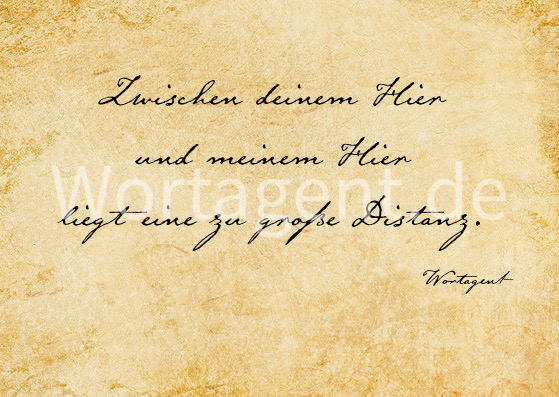 Zwischen deinem Hier
und meinem Hier
Wortagent.de
liegt eine zu große Distanz.
Wortagent